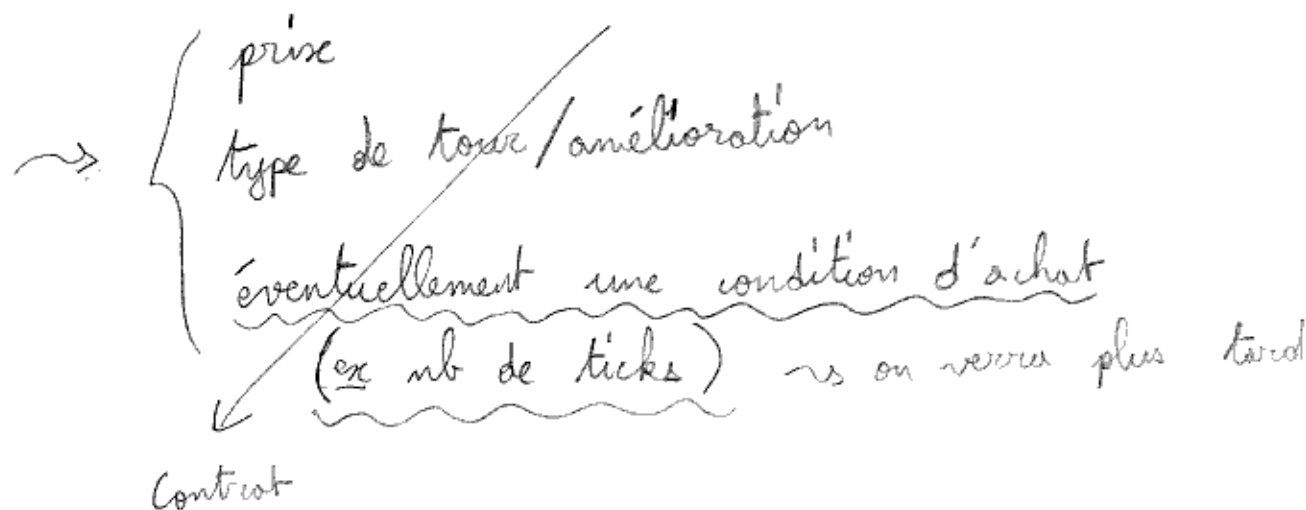 prix
type de tour/amélioration
éventuellement une condition d'achat
(ex nb de ticks) ~> on verra plus tard
Contrat